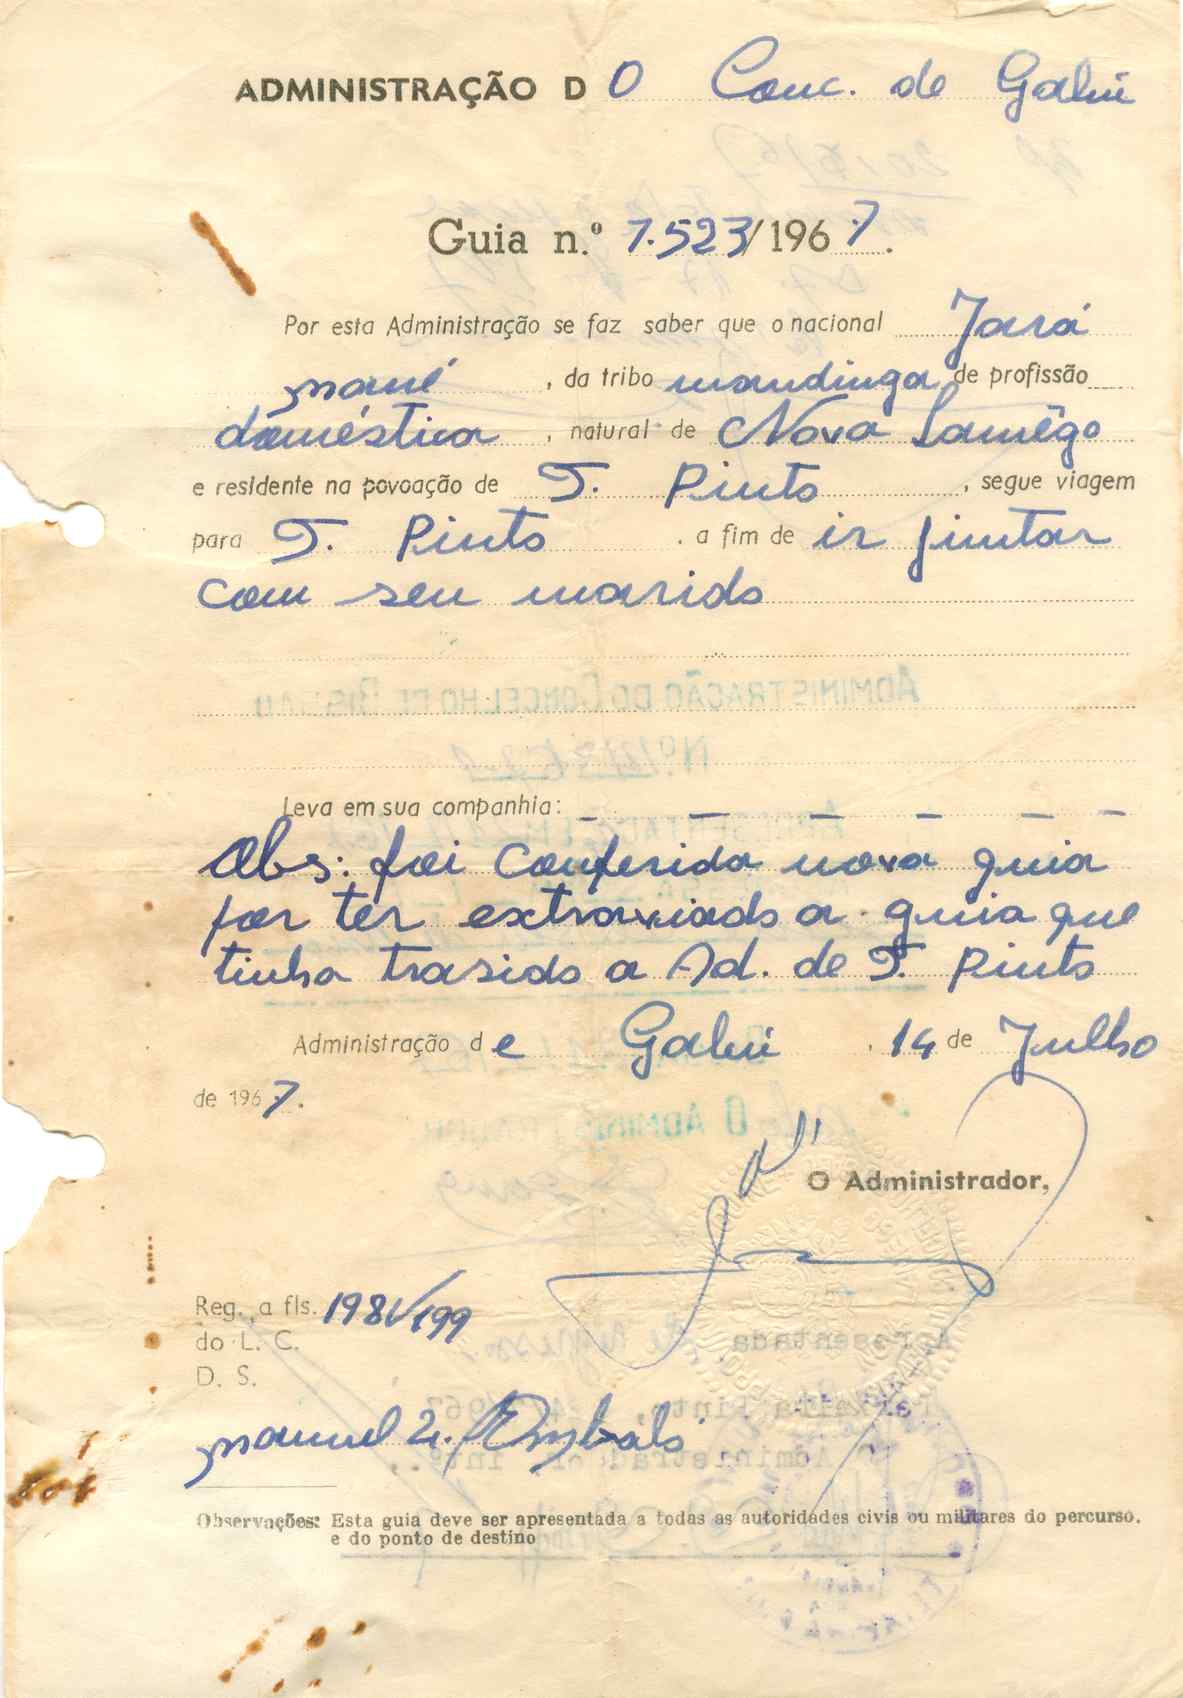 ADMINISTRAÇÃO D O Conc. de Gabú
Guia n.º 7.523/1967.
Por esta Administração se faz saber que o nacional Jará
mané , da tribo mandinga de profissão
doméstica , natural de Nova Lamêgo
e residente na povoação de T. Pinto , segue viagem
para T. Pinto . a fim de ir juntar
com seu marido
Leva em sua companhia: — — — — — —
Obs: foi conferida nova guia
por ter extraviado a guia que
tinha trasido a Ad. de T. Pinto
Administração de Gabú , 14 de Julho
de 1967.
O Administrador,
Reg. a fls. 198v/199
do L. C.
D. S.
Manuel
Observações: Esta guia deve ser apresentada a todas as autoridades civis ou militares do percurso.
e do ponto de destino